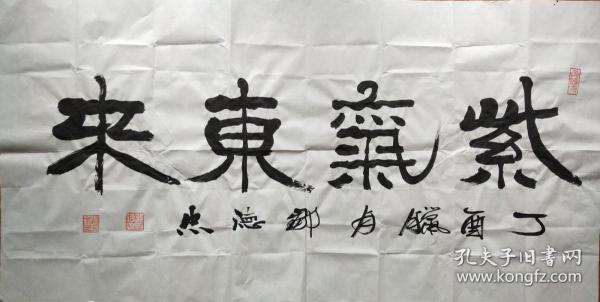 紫氣東來
丁酉臘月德
孔夫子旧书网
www.kongfz.com